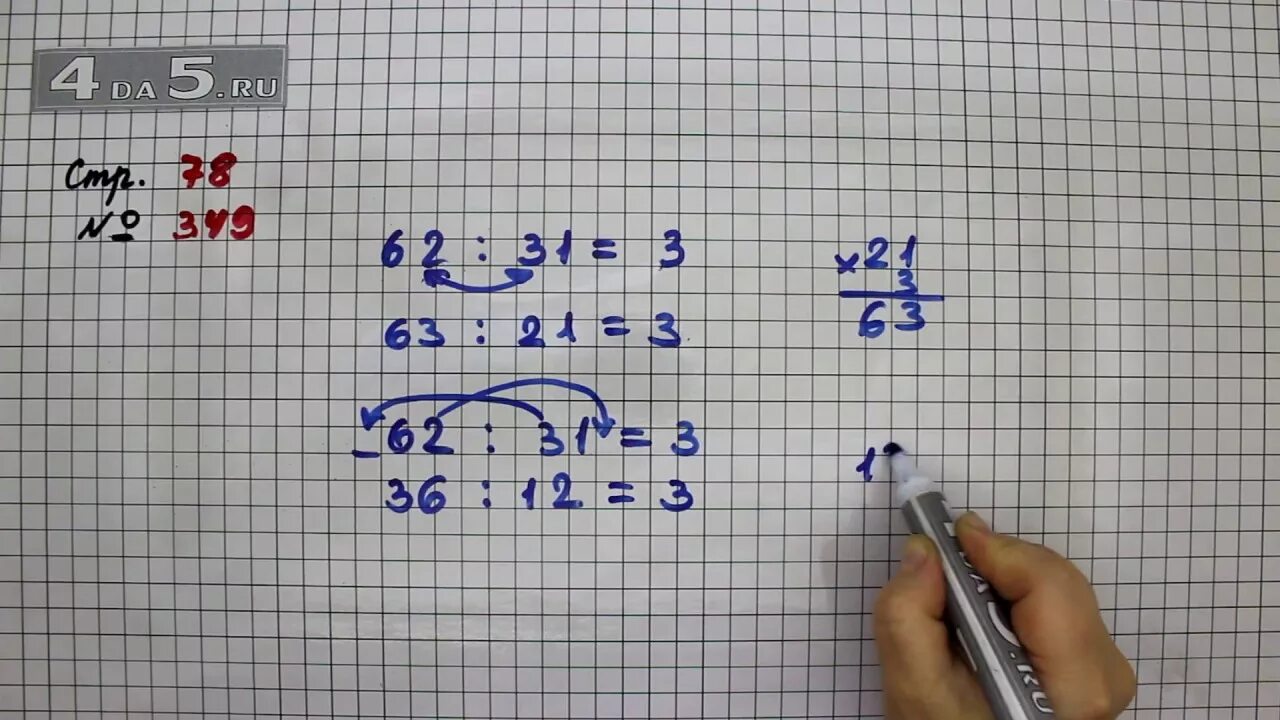 4 DA 5.RU
Стр. 78
№ 349
62 : 31 = 3
63 : 21 = 3
-62 : 31 = 3
36 : 12 = 3
× 21
3
63
1